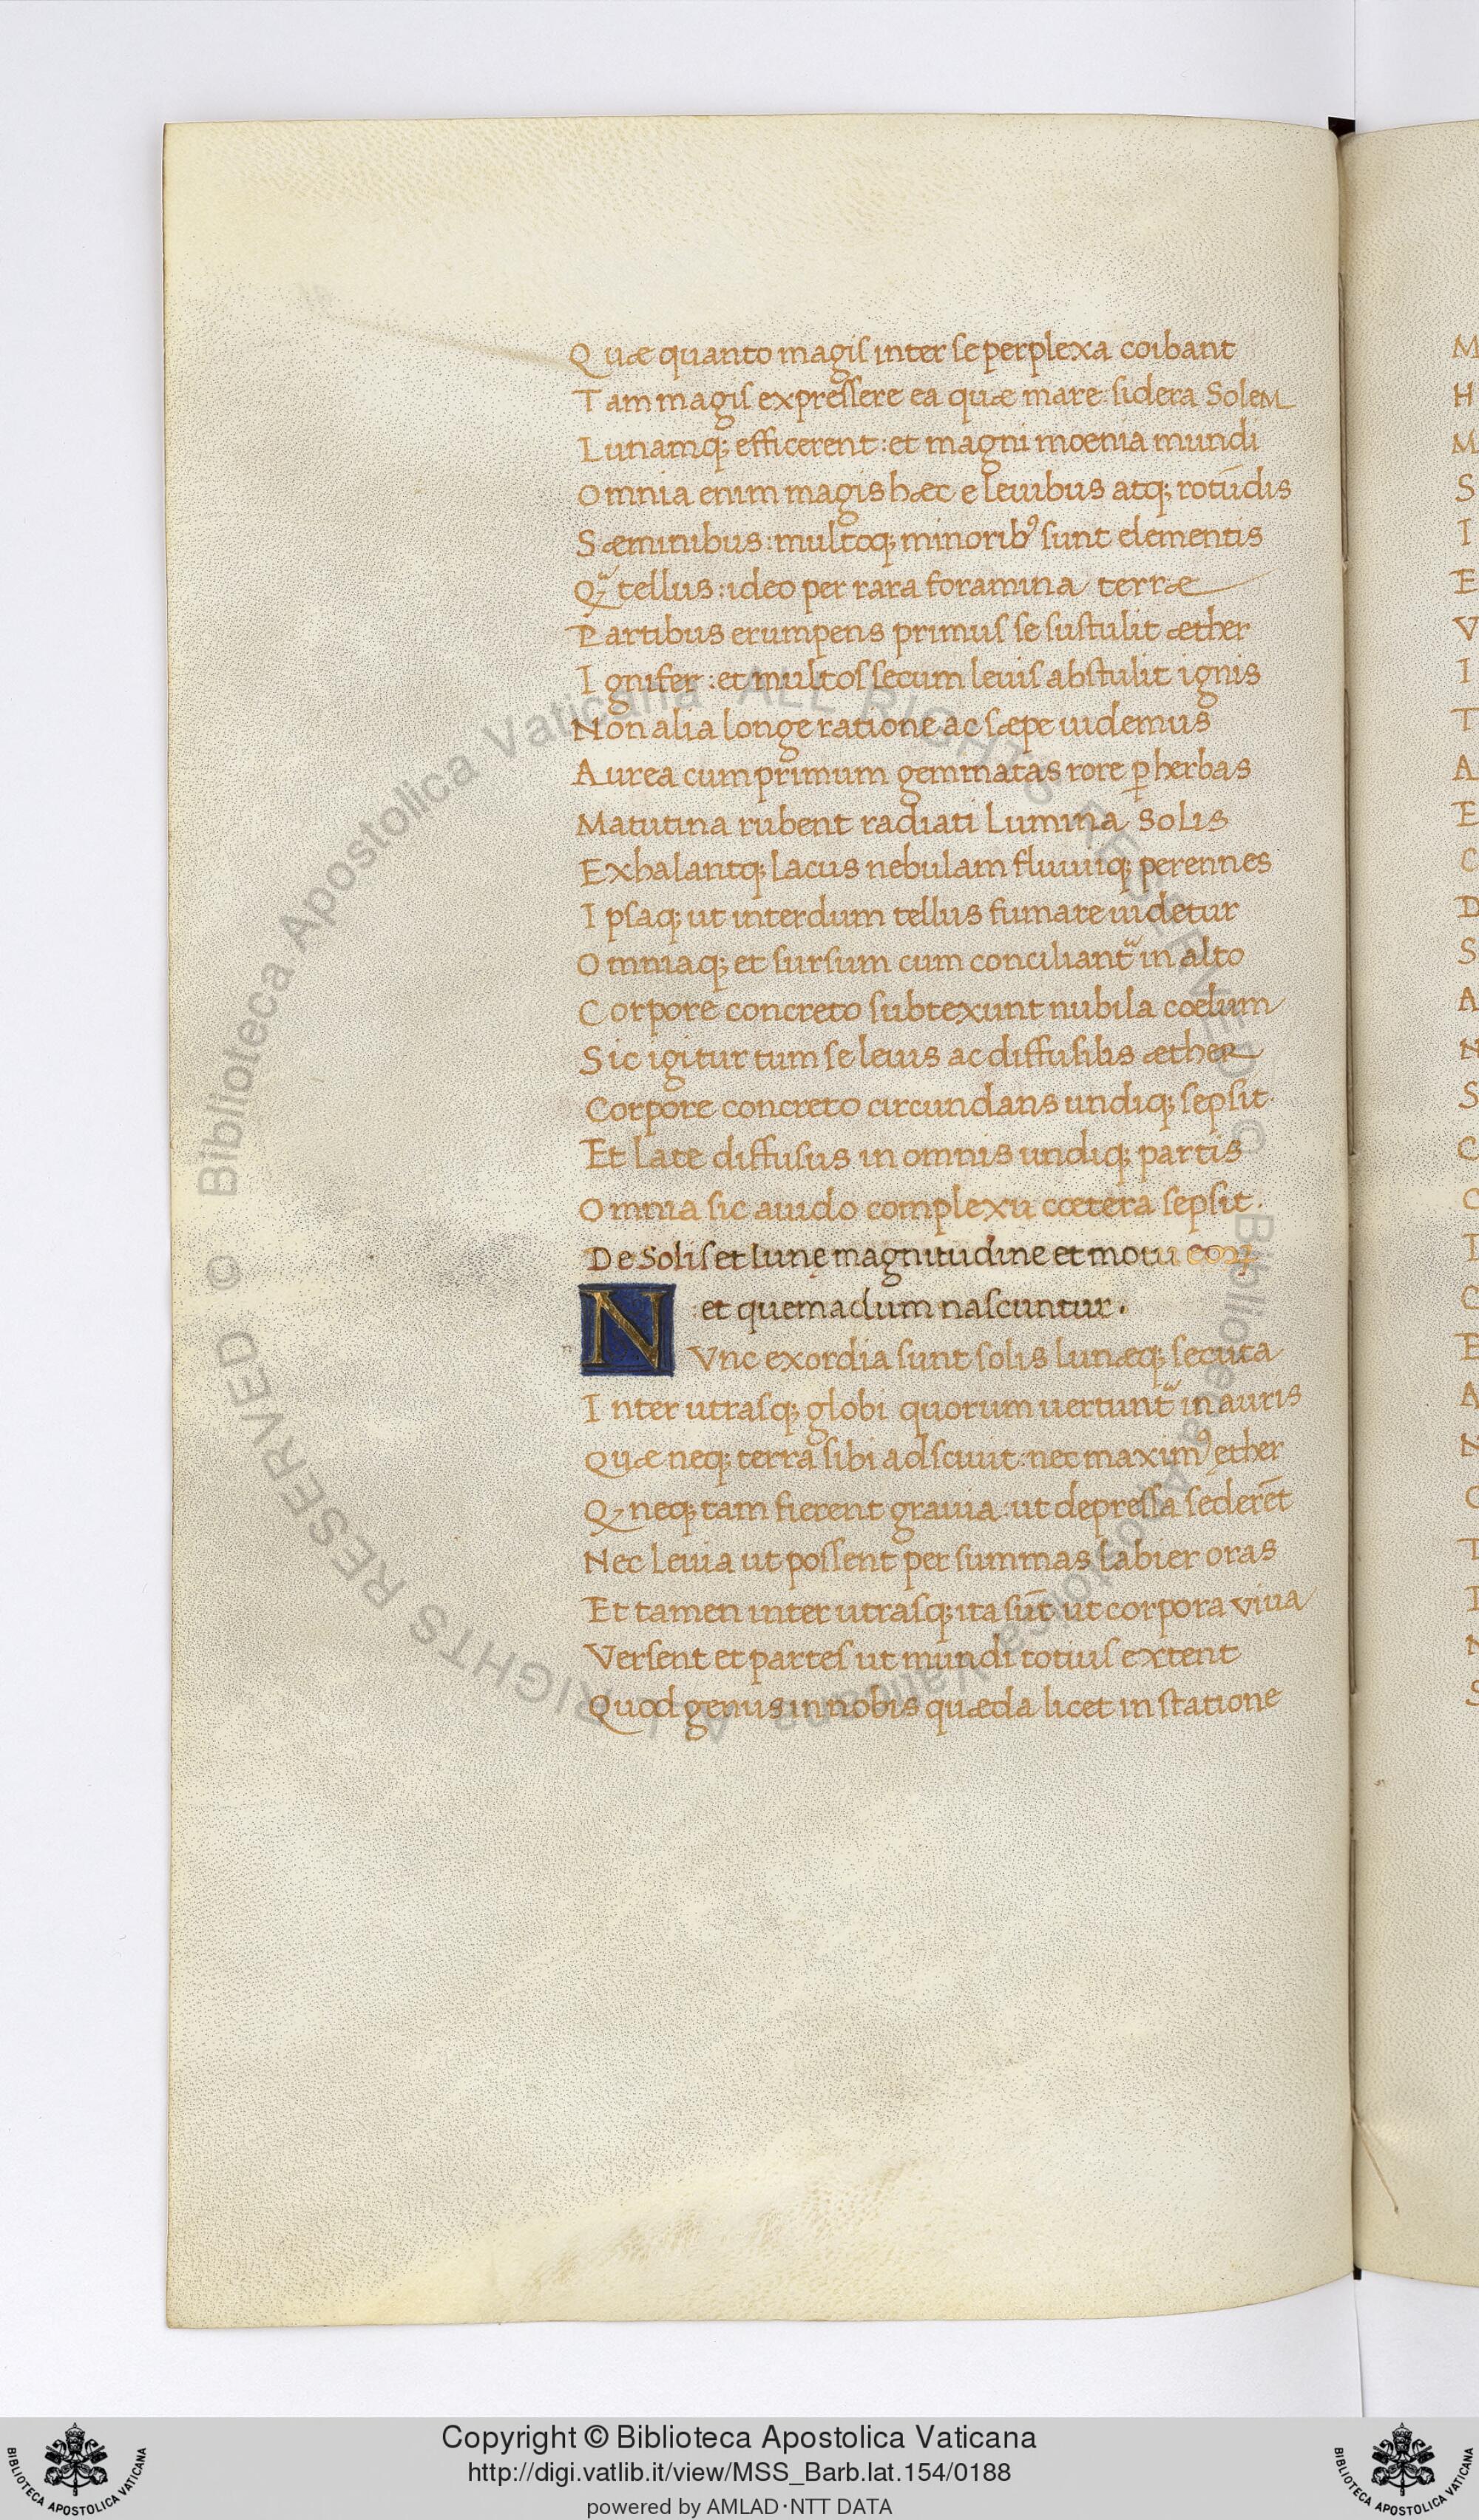 Quæ quanto magis inter se perplexa coibant
Tam magis expressere ea quæ mare: sidera SoleM
Lunamq; efficerent: et magni moenia mundi
Omnia enim magis hæc e leuibus atq; rotūdis
Sæminibus: multoq; minoribꝰ sunt elementis
Qᷓ tellus: ideo per rara foramina terræ
Partibus erumpens primus se sustulit æther
Ignifer: et multos secum leuis abstulit ignis
Non alia longe ratione ac sæpe uidemus
Aurea cum primum gemmatas rore ꝑ herbas
Matutina rubent radiati Lumina Solis
Exhalantq; Lacus nebulam fluuiiq; perennes
Ipsaq; ut interdum tellus fumare uidetur
Omniaq; et sursum cum conciliantᷓ in alto
Corpore concreto subtexunt nubila cœlum
Sic igitur tum se leuis ac diffusilis æther
Corpore concreto circundans undiq; sepsit.
Et late diffusus in omnis undiq; partis
Omnia sic auido complexu cœtera sepsit.
De Solis et lunę magnitudine et motu eoꝝ
et quemadum nascuntur.
NVnc exordia sunt solis lunæq; secuta
Inter utrasq; globi quorum uertuntᷓ in auris
Quæ neq; terra sibi adsciuit: nec maximꝰ ether
Q neq; tam fierent grauia: ut depressa sederēt
Nec Leuia ut possent per summas labier oras
Et tamen inter utrasq; ita sūt ut corpora viua
Versent et partes ut mundi totius extent
Quod genus in nobis quæda licet in statione
M
H
M
S
I
E
V
I
T
A
E
C
D
S
A
N
S
C
C
I
C
E
A
N
C
T
I
N
S
© Biblioteca Apostolica Vaticana ALL RIGHTS RESERVED © Biblioteca Apostolica Vaticana ALL RIGHTS RESERVED
Copyright © Biblioteca Apostolica Vaticana
http://digi.vatlib.it/view/MSS_Barb.lat.154/0188
powered by AMLAD·NTT DATA
BIBLIOTECA APOSTOLICA VATICANA
BIBLIOTECA APOSTOLICA VATICANA